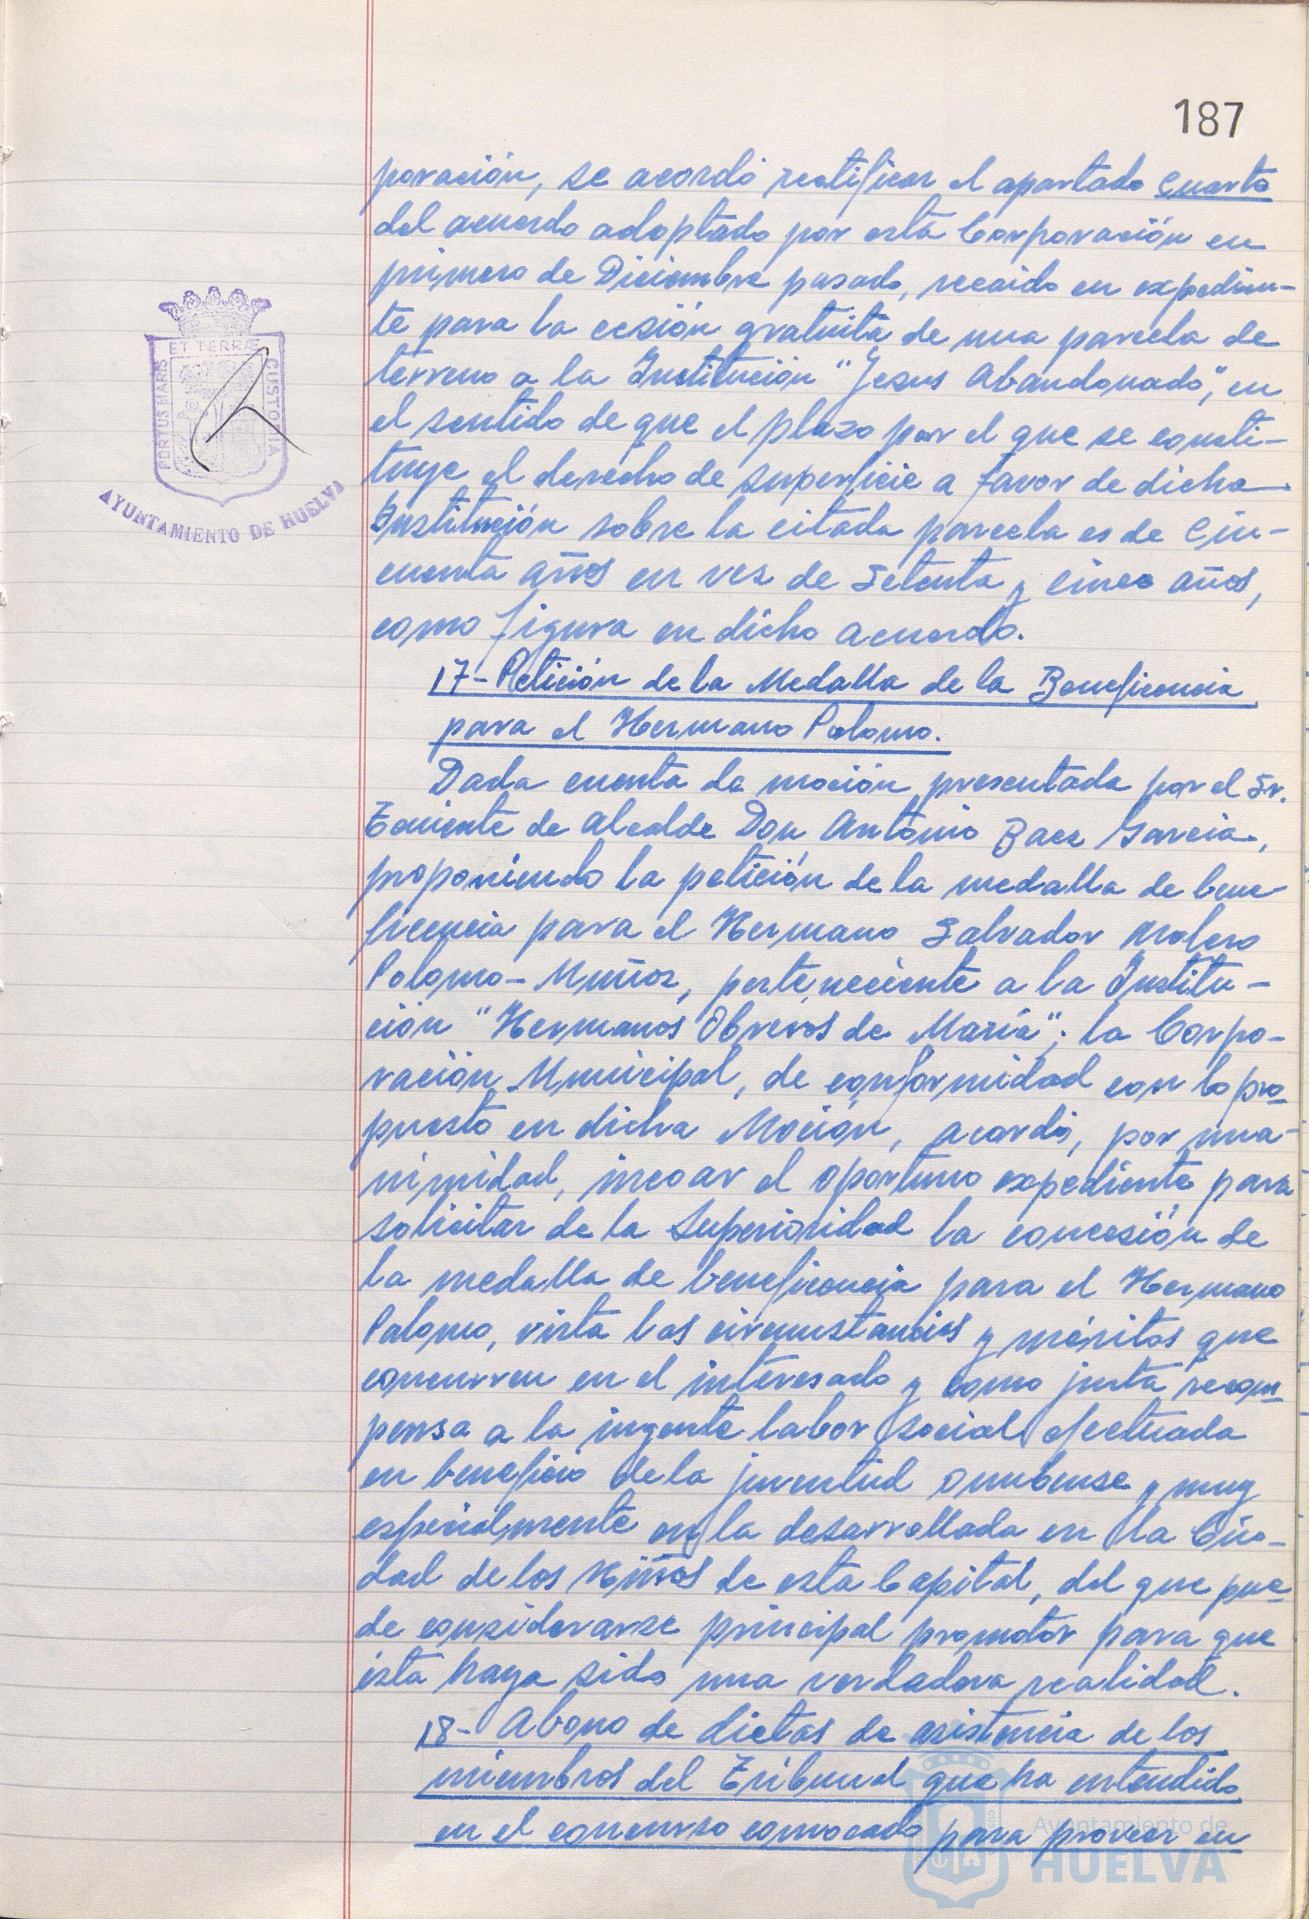 187
poración, se acordó rectificar el apartado cuarto
del acuerdo adoptado por esta Corporación en
primero de Diciembre pasado, recaido en expedien-
te para la cesión gratuita de una parcela de
terreno a la Institución "Jesus Abandonado", en
el sentido de que el plazo por el que se consti-
tuye el derecho de superficie a favor de dicha
Institución sobre la citada parcela es de cin-
cuenta años en vez de setenta y cinco años,
como figura en dicho acuerdo.
17- Petición de la Medalla de la Beneficencia
para el Hermano Palomo.
Dada cuenta de moción presentada por el Sr.
Teniente de alcalde Don Antonio Baez Garcia,
proponiendo la petición de la medalla de bene-
ficencia para el Hermano Salvador Molero
Polomo-Muñoz, perteneciente a la Institu-
ción "Hermanos Obreros de María"; la Corpo-
ración Municipal, de conformidad con lo pro-
puesto en dicha Moción, acordó, por una-
nimidad, incoar el oportuno expediente para
solicitar de la Superioridad la concesión de
la medalla de beneficencia para el Hermano
Palomo, vista las circunstancias y méritos que
concurren en el interesado y como justa recom-
pensa a la ingente labor social efectuada
en beneficio de la juventud onubense y muy
especialmente en la desarrollada en la Ciu-
dad de los Niños de esta Capital, del que pue-
de considerarse principal promotor para que
ésta haya sido una verdadera realidad.
18- Abono de dietas de asistencia de los
miembros del Tribunal que ha entendido
en el concurso convocado para proveer en
PORTUS MARIS ET TERRÆ CUSTODIA
AYUNTAMIENTO DE HUELVA
Ayuntamiento de
HUELVA